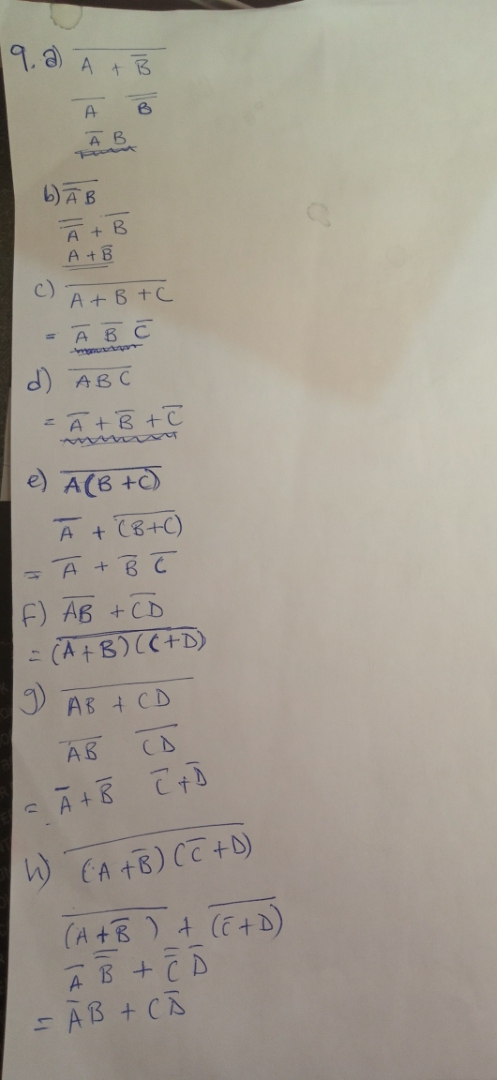 9. a) \overline{A + \overline{B}}
\overline{A} \overline{\overline{B}}
\overline{A} B
b) \overline{\overline{A} B}
\overline{\overline{A}} + \overline{B}
A + \overline{B}
c) \overline{A + B + C}
= \overline{A} \overline{B} \overline{C}
d) \overline{ABC}
= \overline{A} + \overline{B} + \overline{C}
e) \overline{A(B + C)}
\overline{A} + \overline{(B+C)}
= \overline{A} + \overline{B} \overline{C}
F) \overline{AB} + \overline{CD}
= \overline{(A+B)(C+D)}
g) \overline{AB + CD}
\overline{AB} \overline{CD}
= \overline{A} + \overline{B} \overline{C} + \overline{D}
h) \overline{(A + \overline{B})(\overline{C} + D)}
\overline{(A + \overline{B})} + \overline{(\overline{C} + D)}
\overline{A} \overline{\overline{B}} + \overline{\overline{C}} \overline{D}
= \overline{A} B + C \overline{D}